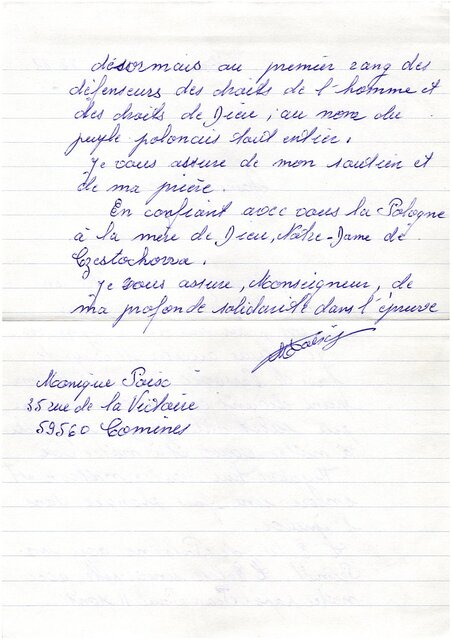 désormais au premier rang des
défenseurs des droits de l'homme et
des droits de Dieu, au nom du
peuple polonais tout entier.
Je vous assure de mon soutien et
de ma prière.
En confiant avec vous la Pologne
à la mère de Dieu, Notre-Dame de
Czestochowa.
Je vous assure, Monseigneur, de
ma profonde solidarité dans l'épreuve
Monique
35 rue de la Victoire
59560 Comines